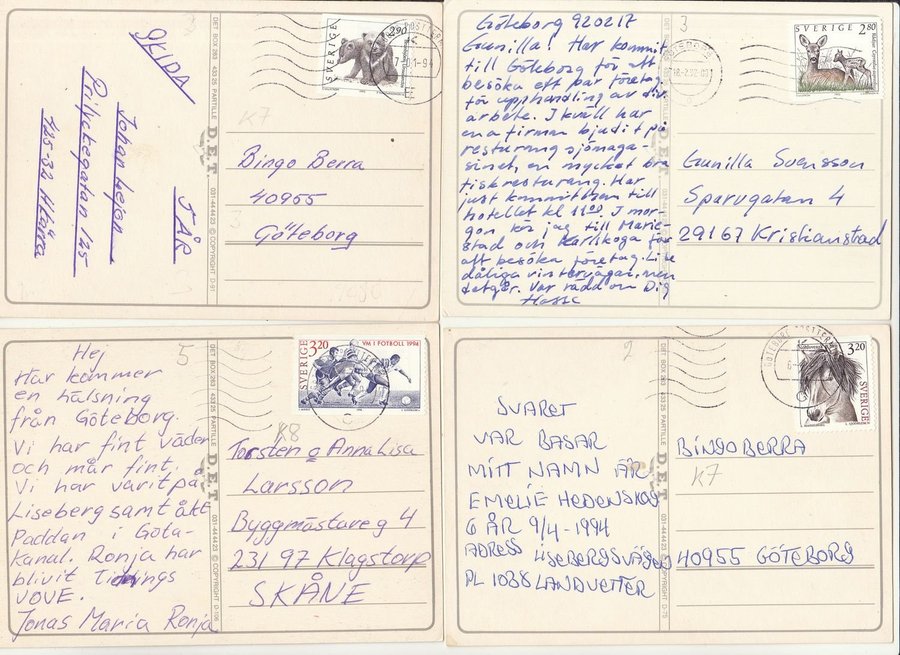 SKIDA
Johan
Prilyckegatan 125
425-32 Hisings Kärra
7 ÅR
DET BOX 293 433 25 PARTILLE D.E.T. 031-44 44 23 © COPYRIGHT D-91
SVERIGE 2.90
K7
Bingo Berra
40955
Göteborg
Göteborg 920217
Gunilla! Har kommit
till Göteborg för att
besöka ett par företag
för upphandling av div.
arbete. I kväll har
en a firman bjudit på
resturang sjömaga-
sinet, en mycket bra
fiskresturang. Har
just kommit hem till
hotellet kl 11 00. I mor-
gon kör jag till Marie-
stad och Karlskoga för
att besöka företag. Lite
dåliga vintervägar, men
det går. Var rädd om Dig
Hasse
3
SVERIGE 2.80
Gunilla Svensson
Sparvgatan 4
29167 Kristianstad
5
Hej
Här kommer
en hälsning
från Göteborg.
Vi har fint väder
och mår fint.
Vi har varit på
Liseberg samt åkt
Paddan i Göta-
kanal. Ronja har
blivit tidnings
VOVE.
Jonas Maria Ronja
DET BOX 293 433 25 PARTILLE D.E.T. 031-44 44 23 © COPYRIGHT D-106
SVERIGE 3.20 VM I FOTBOLL 1994
K8
Torsten o Anna Lisa
Larsson
Byggmästareg 4
231 97 Klagstorp
SKÅNE
2
SVARET
VAR BASAR
MITT NAMN ÄR
EMELIE HEDENSKOG
6 ÅR 9/4-1994
ADRESS LISEBERGSVÄGEN
PL 1038 LANDVETTER
DET BOX 293 433 25 PARTILLE D.E.T. 031-44 44 23 © COPYRIGHT D-75
3.20 SVERIGE
BINGO BERRA
K7
40955 GÖTEBORG